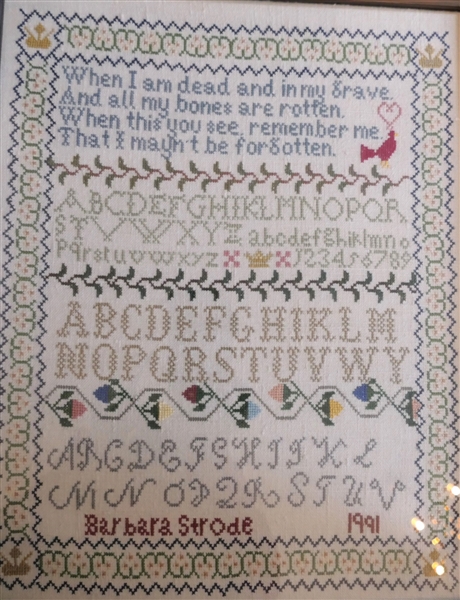 When I am dead and in my grave,
And all my bones are rotten.
When this you see, remember me
That I mayn't be forgotten.
ABCDEFGHIKLMNOPQR
STVWXYZ abcdefghiklmno
pqrstuvwxyz 123456789
ABCDEFGHIKLM
NOPQRSTUVWY
ABCDEFGHIJKL
MNOPQRSTUV
Barbara Strode 1991